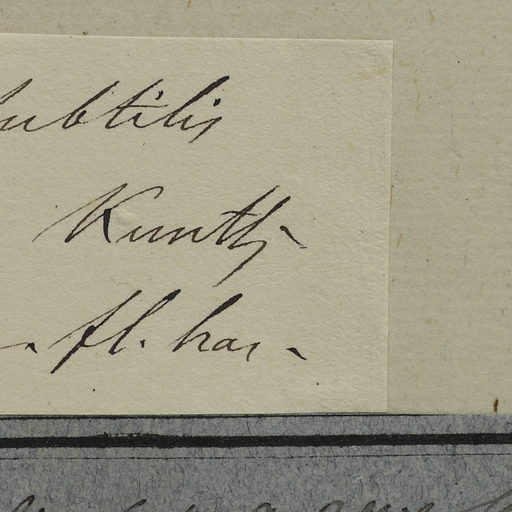 subtilis
Kunth
. fl. bas.